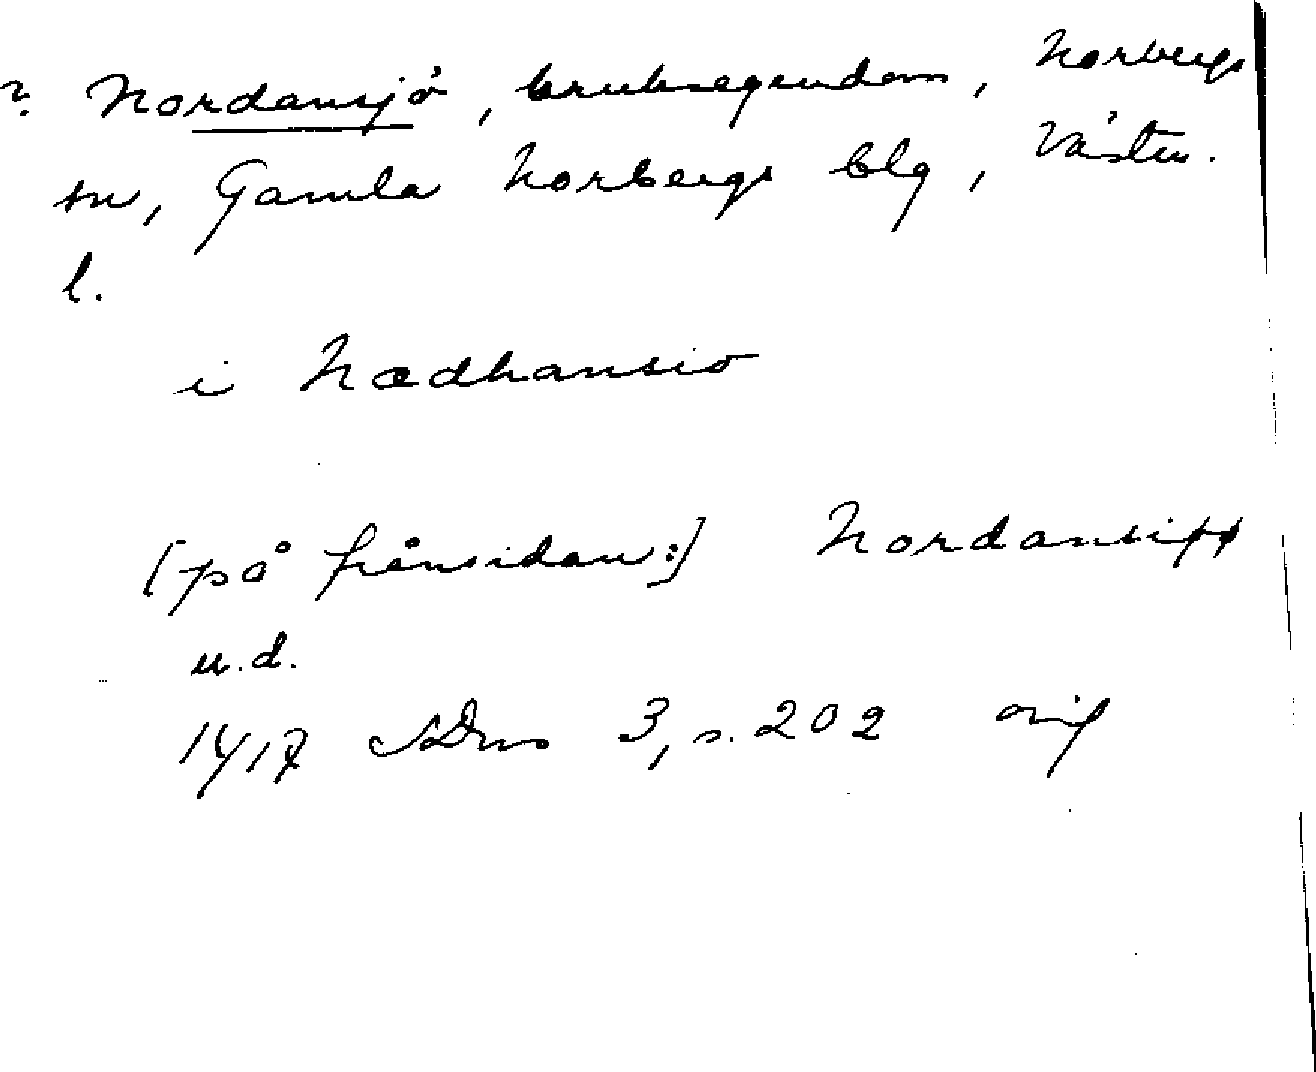 ? Nordansjö, bruksegendom, Norbergs
sn, Gamla Norbergs blg, Västm.
l.
i Nædhansio
[på frånsidan:] Nordansiøø
u.d.
1417 SDns 3, s. 202 orig